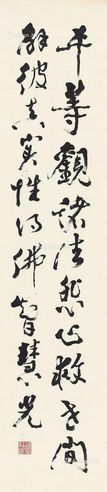 平等觀諸法悲心救世間
解彼真實性得佛智慧光